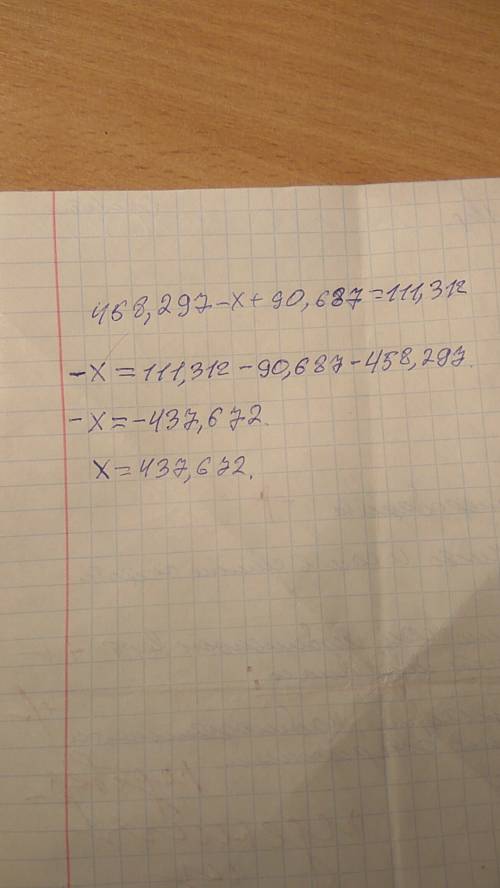 458,297-x+90,687=111,312
-x=111,312-90,687-458,297.
-x=-437,672.
x=437,672.